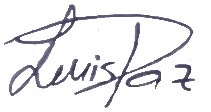 Luis Paz